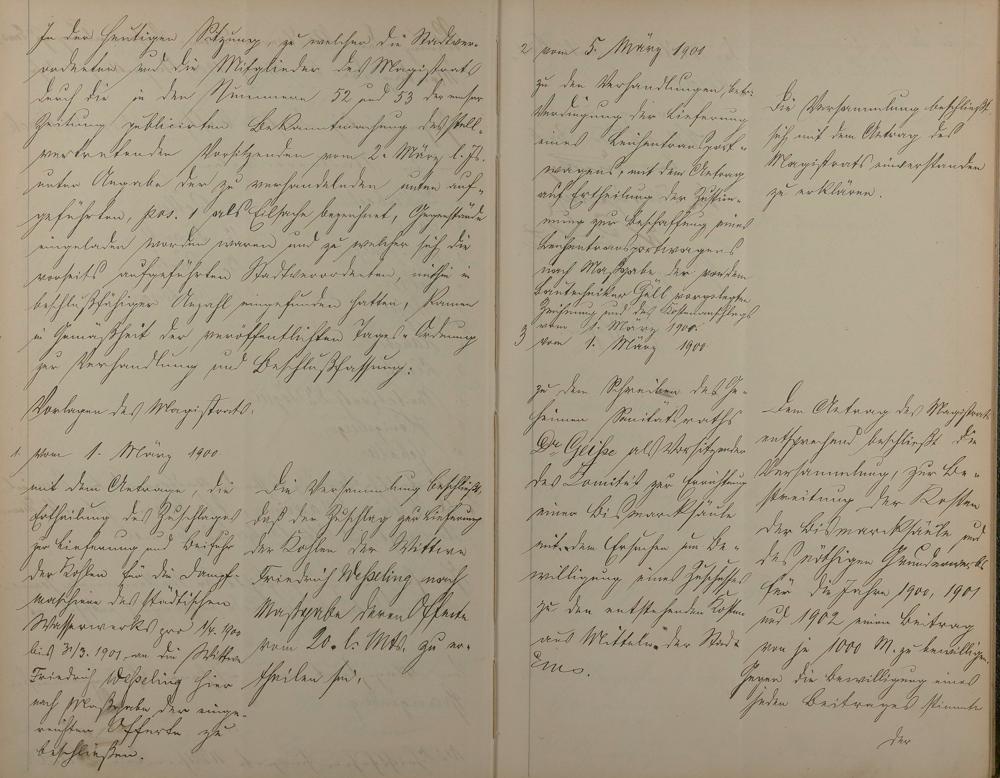 In der heutigen Sitzung zu welcher die Stadtver-
ordneten und die Mitglieder des Magistrats
durch die in den Nummern 52 und 53 der emser
Zeitung publicirten Bekanntmachung des stell-
vertretenden Vorsitzenden vom 2. März l. Js.
unter Angabe der zu verhandelnden unten auf-
geführten, pos. 1 als Eilsache bezeichnet, Gegenstände
eingeladen worden waren und zu welcher sich die
vorseits aufgeführten Stadtverordneten, mithin in
beschlußfähiger Anzahl eingefunden hatten, kamen
in Gemäßheit der veröffentlichten Tages-Ordnung
zur Verhandlung und Beschlußfassung:
Vorlagen des Magistrats.
1. vom 1. März 1900
mit dem Antrage, die
Ertheilung des Zuschlages
zur Lieferung und Beifuhr
der Kohlen für die Dampf-
maschine des städtischen
Wasserwerks pro 1/4. 1900
bis 31/3. 1901 an die Wittwe
Friedrich Weßeling hier
nach Maßgabe der einge-
reichten Offerte zu
beschließen.
Die Versammlung beschließt,
daß der Zuschlag zur Lieferung
der Kohlen der Wittwe
Friedrich Weßeling nach
Maßgabe deren Offerte
vom 20. l. Mts. zu er-
theilen sei.
2 vom 5. März 1900
zu den Verhandlungen, betr.
Verdingung der Lieferung
eines Leichentransport-
wagens, mit dem Antrag
auf Ertheilung der Zustim-
mung zur Beschaffung eines
Leichentransportwagens
nach Maßgabe der von dem
Bautechniker Göll vorgelegten
Zeichnung und des Kostenanschlags
vom 1. März 1900.
Die Versammlung beschließt
sich mit dem Antrag des
Magistrats einverstanden
zu erklären.
3 vom 1. März 1900
zu dem Schreiben des Ge-
heimen Sanitätsraths
Dr. Geiße als Vorsitzender
des Comités zur Errichtung
einer Bismarcksäule
mit dem Ersuchen um Be-
willigung eines Zuschußes
zu den entstehenden Kosten
aus Mitteln der Stadt
Ems.
Dem Antrag des Magistrats
entsprechend beschließt die
Versammlung, zur Be-
streitung der Kosten
der Bismarcksäule und
des nöthigen Grunderwerbs
für die Jahre 1900, 1901
und 1902 einen Beitrag
von je 1000 M. zu bewilligen.
Gegen die Bewilligung eines
jeden Beitrages stimmte
der